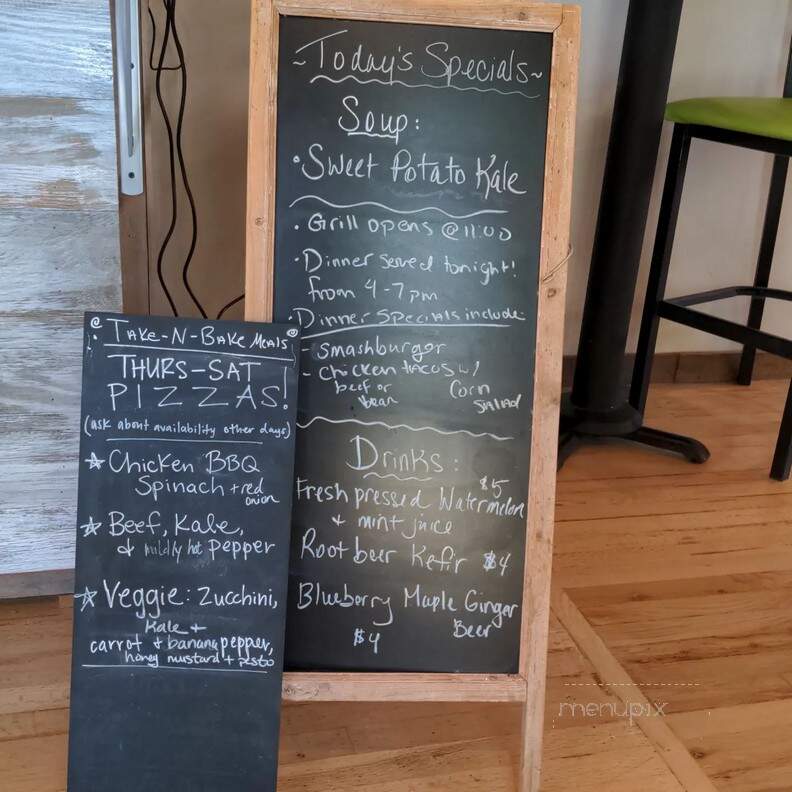 ~Today's Specials~
Soup:
• Sweet Potato Kale
• Grill opens @11:00
• Dinner served tonight!
from 4-7pm
• Dinner Specials include:
- Smashburger
- Chicken tacos w/
beef or bean
Corn Salad
Drinks:
Fresh pressed Watermelon $5
+ mint juice
Root beer Kefir $4
Blueberry Maple Ginger
Beer
$4
Take-N-Bake Meals
THURS-SAT
PIZZAS!
(ask about availability other days)
☆ Chicken BBQ
Spinach + red onion
☆ Beef, Kale,
& mildly hot pepper
☆ Veggie: Zucchini,
Kale +
carrot + banana pepper,
honey mustard + pesto
menupix